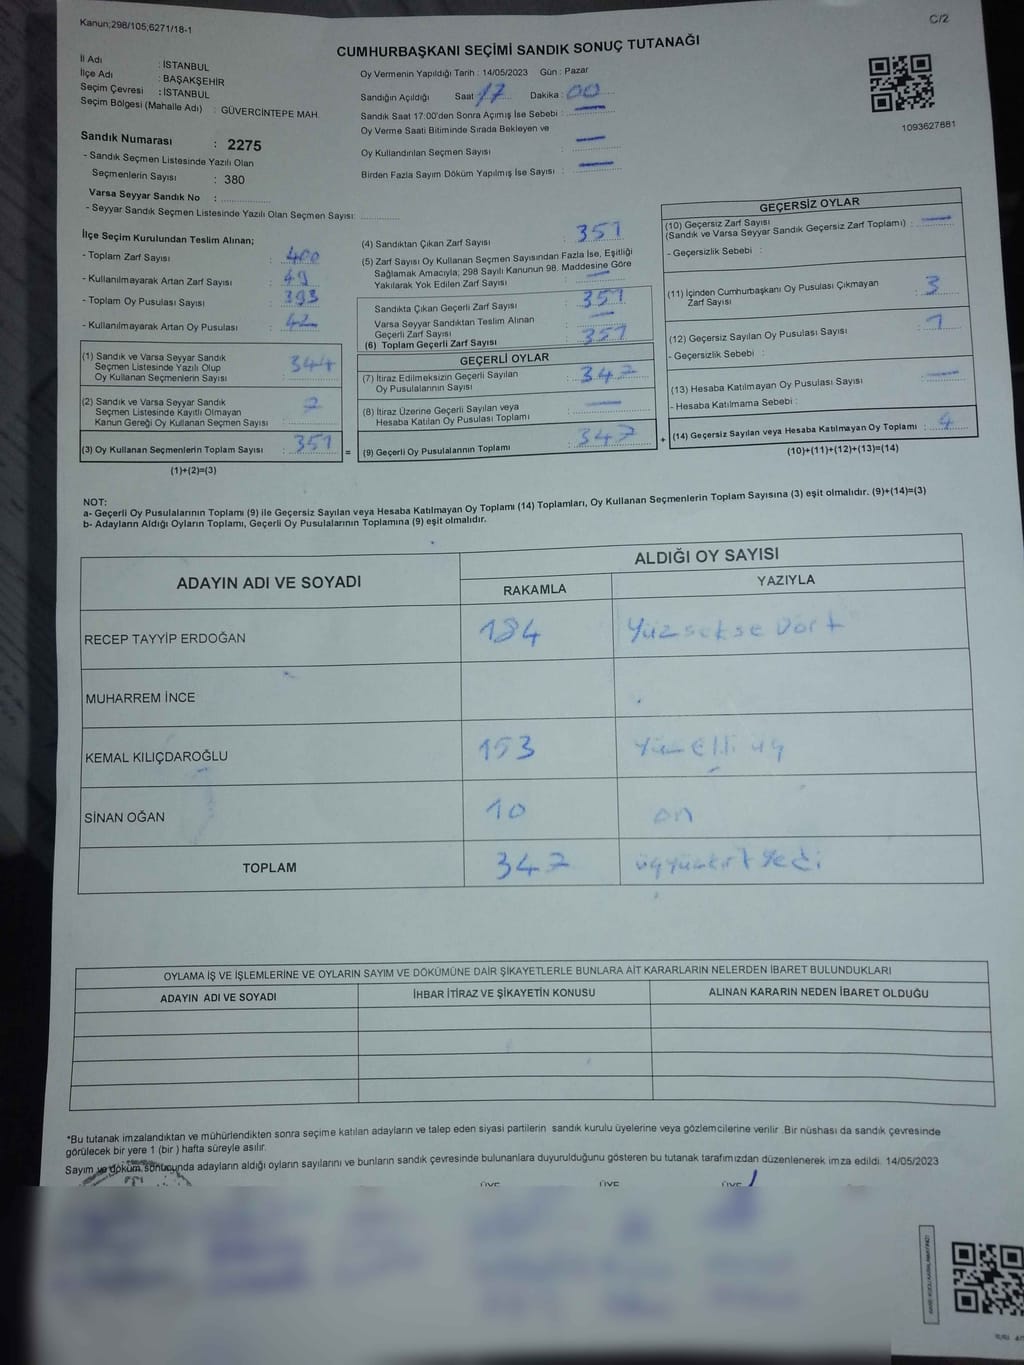 Kanun;298/105,6271/18-1
C/2
CUMHURBAŞKANI SEÇİMİ SANDIK SONUÇ TUTANAĞI
İl Adı : İSTANBUL
İlçe Adı : BAŞAKŞEHİR
Seçim Çevresi : İSTANBUL
Seçim Bölgesi (Mahalle Adı) : GÜVERCİNTEPE MAH.
Sandık Numarası : 2275
- Sandık Seçmen Listesinde Yazılı Olan
Seçmenlerin Sayısı : 380
Varsa Seyyar Sandık No :
- Seyyar Sandık Seçmen Listesinde Yazılı Olan Seçmen Sayısı:
Oy Vermenin Yapıldığı Tarih : 14/05/2023 Gün : Pazar
Sandığın Açıldığı Saat : 17 Dakika : 00
Sandık Saat 17:00'den Sonra Açımış İse Sebebi : —
Oy Verme Saati Bitiminde Sırada Bekleyen ve
Oy Kullandırılan Seçmen Sayısı : —
Birden Fazla Sayım Döküm Yapılmış İse Sayısı : —
1093627881
İlçe Seçim Kurulundan Teslim Alınan;
- Toplam Zarf Sayısı : 400
- Kullanılmayarak Artan Zarf Sayısı : 49
- Toplam Oy Pusulası Sayısı : 393
- Kullanılmayarak Artan Oy Pusulası : 42
(1) Sandık ve Varsa Seyyar Sandık
Seçmen Listesinde Yazılı Olup
Oy Kullanan Seçmenlerin Sayısı : 344
(2) Sandık ve Varsa Seyyar Sandık
Seçmen Listesinde Kayıtlı Olmayan
Kanun Gereği Oy Kullanan Seçmen Sayısı : 7
(3) Oy Kullanan Seçmenlerin Toplam Sayısı : 351
(1)+(2)=(3)
=
(4) Sandıktan Çıkan Zarf Sayısı : 351
(5) Zarf Sayısı Oy Kullanan Seçmen Sayısından Fazla İse, Eşitliği
Sağlamak Amacıyla; 298 Sayılı Kanunun 98. Maddesine Göre
Yakılarak Yok Edilen Zarf Sayısı : —
Sandıkta Çıkan Geçerli Zarf Sayısı : 351
Varsa Seyyar Sandıktan Teslim Alınan
Geçerli Zarf Sayısı : —
(6) Toplam Geçerli Zarf Sayısı : 351
GEÇERLİ OYLAR
(7) İtiraz Edilmeksizin Geçerli Sayılan
Oy Pusulalarının Sayısı : 347
(8) İtiraz Üzerine Geçerli Sayılan veya
Hesaba Katılan Oy Pusulası Toplamı : —
(9) Geçerli Oy Pusulalarının Toplamı : 347
+
GEÇERSİZ OYLAR
(10) Geçersiz Zarf Sayısı
(Sandık ve Varsa Seyyar Sandık Geçersiz Zarf Toplamı) : —
- Geçersizlik Sebebi :
(11) İçinden Cumhurbaşkanı Oy Pusulası Çıkmayan
Zarf Sayısı : 3
(12) Geçersiz Sayılan Oy Pusulası Sayısı : 1
- Geçersizlik Sebebi :
(13) Hesaba Katılmayan Oy Pusulası Sayısı : —
- Hesaba Katılmama Sebebi :
(14) Geçersiz Sayılan veya Hesaba Katılmayan Oy Toplamı : 4
(10)+(11)+(12)+(13)=(14)
NOT:
a- Geçerli Oy Pusulalarının Toplamı (9) ile Geçersiz Sayılan veya Hesaba Katılmayan Oy Toplamı (14) Toplamları, Oy Kullanan Seçmenlerin Toplam Sayısına (3) eşit olmalıdır. (9)+(14)=(3)
b- Adayların Aldığı Oyların Toplamı, Geçerli Oy Pusulalarının Toplamına (9) eşit olmalıdır.
ADAYIN ADI VE SOYADI
ALDIĞI OY SAYISI
RAKAMLA YAZIYLA
RECEP TAYYİP ERDOĞAN 184 Yüzsekse Dört
MUHARREM İNCE
KEMAL KILIÇDAROĞLU 153 Yüzelli üç
SİNAN OĞAN 10 on
TOPLAM 347 üçyüzkırk Yedi
OYLAMA İŞ VE İŞLEMLERİNE VE OYLARIN SAYIM VE DÖKÜMÜNE DAİR ŞİKAYETLERLE BUNLARA AİT KARARLARIN NELERDEN İBARET BULUNDUKLARI
ADAYIN ADI VE SOYADI İHBAR İTİRAZ VE ŞİKAYETİN KONUSU ALINAN KARARIN NEDEN İBARET OLDUĞU
*Bu tutanak imzalandıktan ve mühürlendikten sonra seçime katılan adayların ve talep eden siyasi partilerin sandık kurulu üyelerine veya gözlemcilerine verilir. Bir nüshası da sandık çevresinde
görülecek bir yere 1 (bir) hafta süreyle asılır.
Sayım ve döküm sonucunda adayların aldığı oyların sayılarını ve bunların sandık çevresinde bulunanlara duyurulduğunu gösteren bu tutanak tarafımızdan düzenlenerek imza edildi. 14/05/2023
ÜYE ÜYE ÜYE